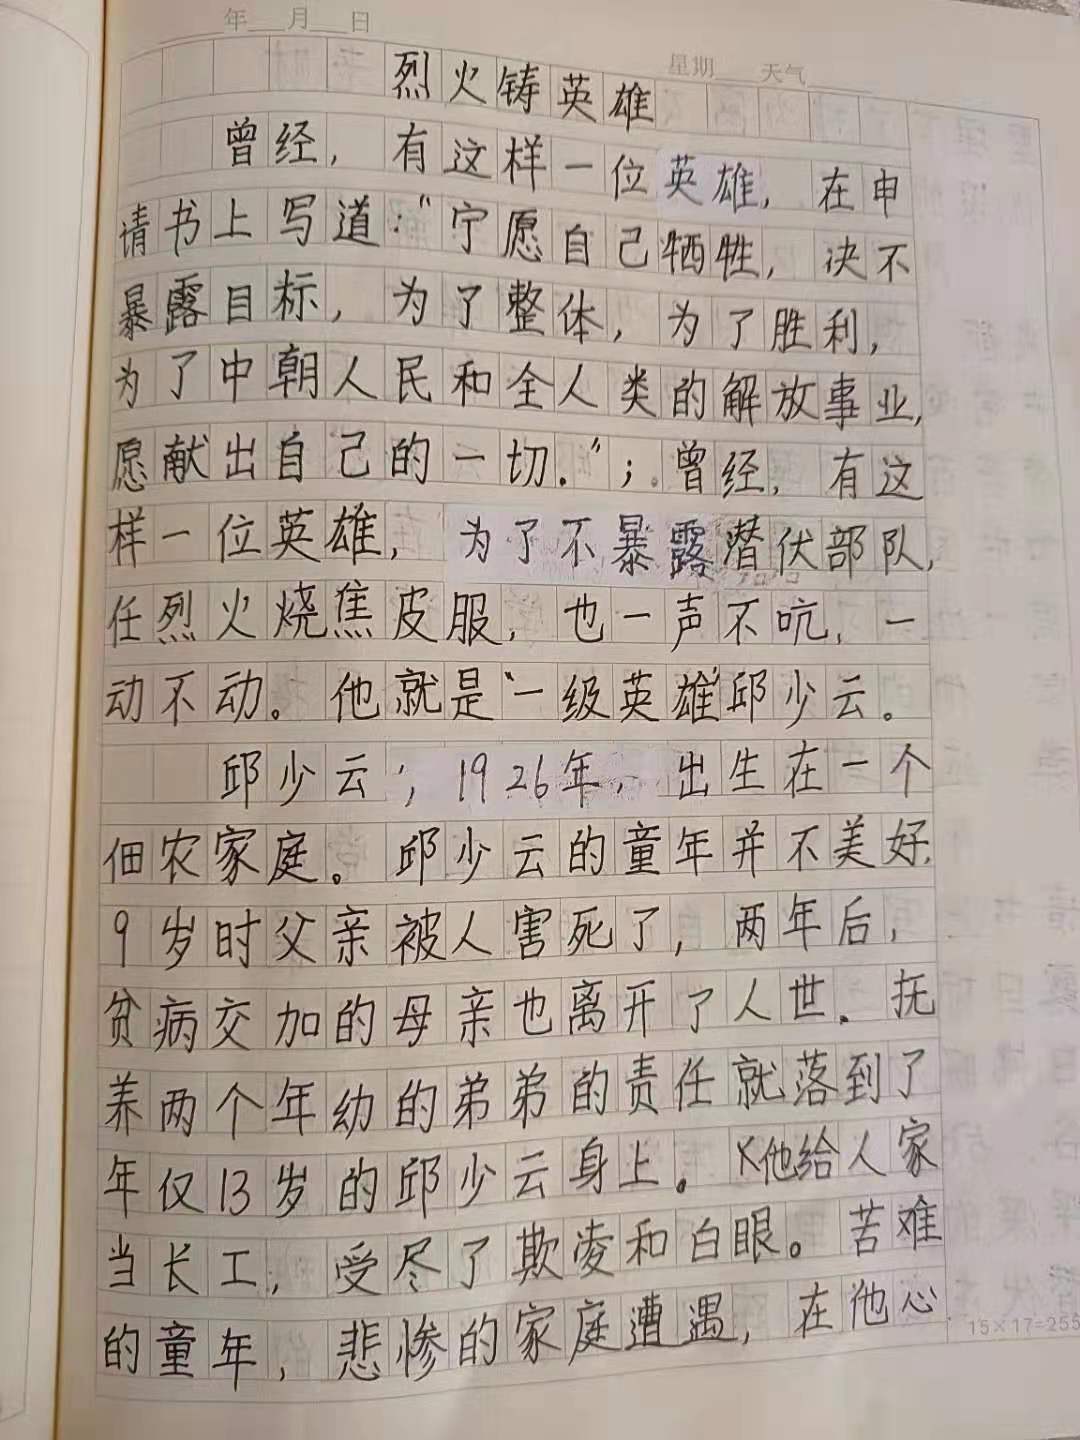 年 月 日
星期 天气
烈火铸英雄
曾经，有这样一位英雄，在申
请书上写道：“宁愿自己牺牲，决不
暴露目标，为了整体，为了胜利，
为了中朝人民和全人类的解放事业，
愿献出自己的一切.”；曾经，有这
样一位英雄，为了不暴露潜伏部队，
任烈火烧焦皮服，也一声不吭，一
动不动。他就是“一级英雄”邱少云。
邱少云；1926年，出生在一个
佃农家庭。邱少云的童年并不美好，
9岁时父亲被人害死了，两年后，
贫病交加的母亲也离开了人世．抚
养两个年幼的弟弟的责任就落到了
年仅13岁的邱少云身上。他给人家
当长工，受尽了欺凌和白眼。苦难
的童年，悲惨的家庭遭遇，在他心
15×17=255